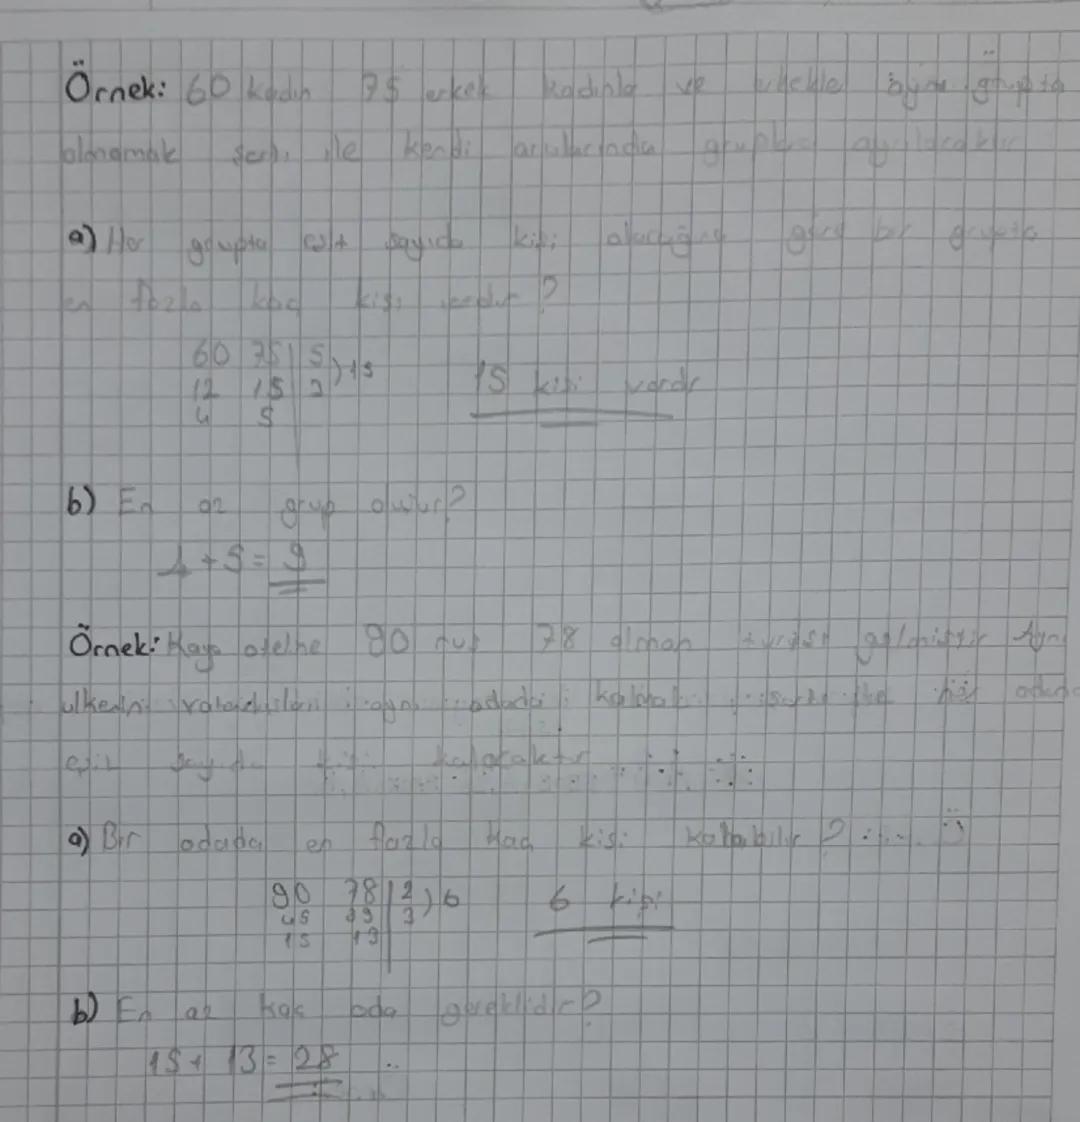 Örnek: 60 kadın 75 erkek kadınla ve erkekle aynı grupta
olmamak şartı ile kendi aralarında gruplara ayrılacaktır
a) Her grupta eşit sayıda kişi olacağına göre bir grupta
en fazla kaç kişi vardır?
60 75 | 5 ) 15
12 15 3 15 kişi vardır
4 5
b) En az grup oluşur?
4 + 5 = 9
Örnek: Kaya oteline 90 rus 78 alman turist gelmiştir Aynı
ülkenin vatandaşları aynı odada kalmak şartı ile her odada
eşit sayıda kişi kalacaktır
a) Bir odada en fazla kaç kişi kalabilir?
90 78 | 2 ) 6 6 kişi
45 39 3
15 13
b) En az kaç oda gereklidir?
15 + 13 = 28